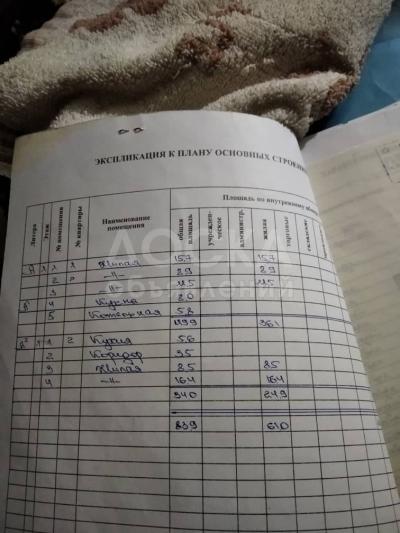 ЭКСПЛИКАЦИЯ К ПЛАНУ ОСНОВНЫХ СТРОЕН
Площадь по внутреннему
Литера Этаж № помещения № квартиры Наименование помещения общая площадь учрежден-ческое администр. жилая торговые
А 1 1 1 Жилая 15,7 15,7
2 -"- 8,9 8,9
3 -"- 11,5 11,5
4 Кухня 8,0
5 Котельная 5,8
49,9 36,1
1 1 2 Кухня 5,6
2 Коридор 3,5
3 Жилая 8,5 8,5
4 -"- 16,4 16,4
34,0 24,9
83,9 61,0
ДОСКА
объявлений